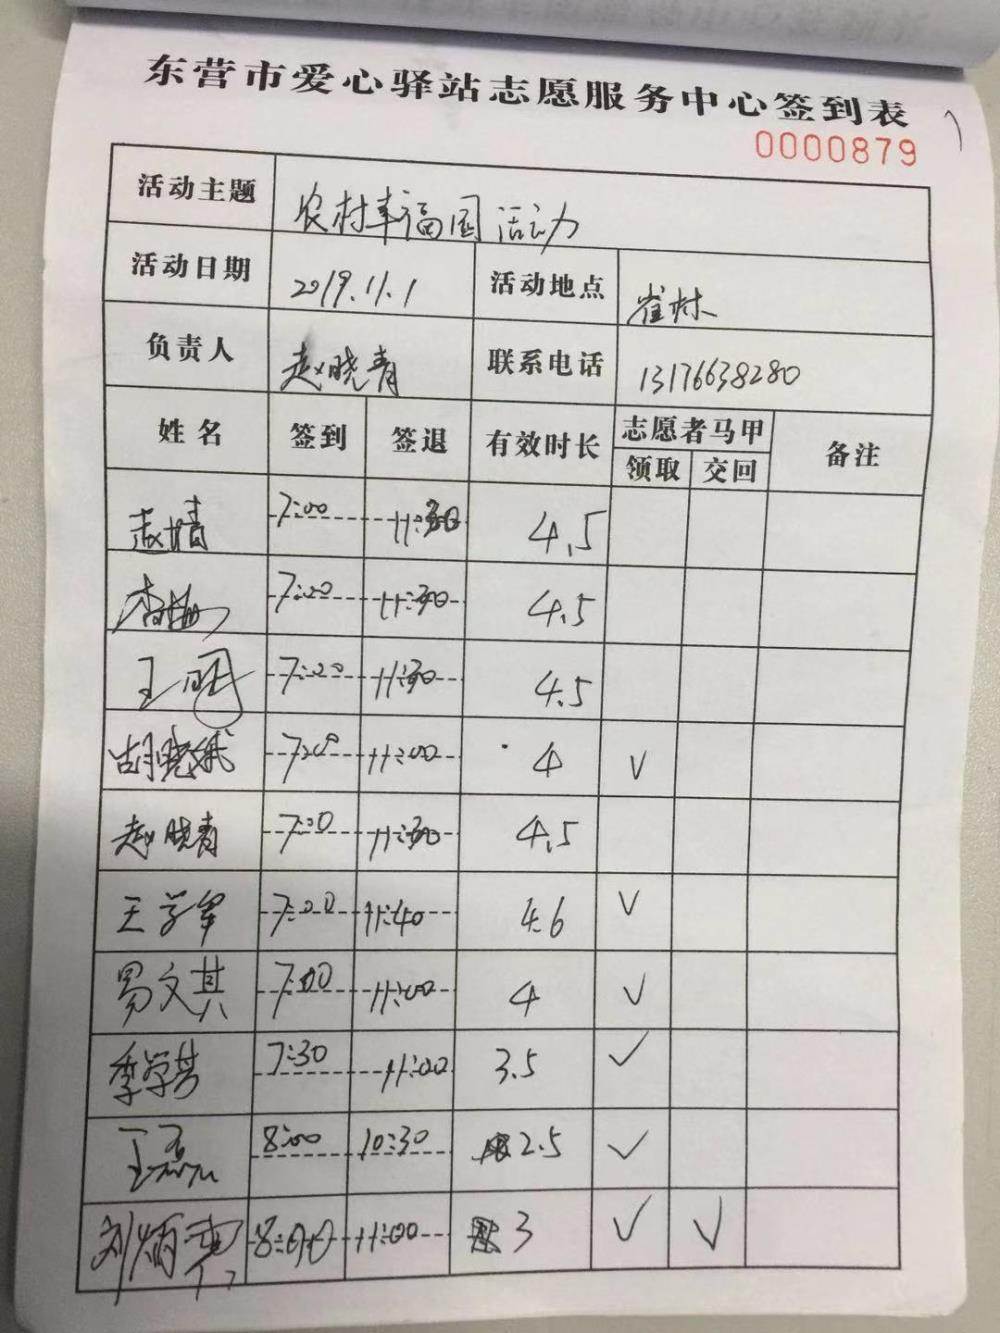 东营市爱心驿站志愿服务中心签到表
0000879
活动主题 农村幸福园活动
活动日期 2019.11.1 活动地点 崔林
负责人 赵晓青 联系电话 13176638280
姓名 签到 签退 有效时长 志愿者马甲 备注
领取 交回
赵婧 7:00 11:30 4.5
7:20 11:30 4.5
王 7:20 11:30 4.5
胡晓娥 11:00 4 √
赵晓青 7:00 11:30 4.5
王学军 7:00 11:40 4.6 √
易文其 7:00 11:00 4 √
季学芳 7:30 11:00 3.5 √
王磊 8:00 10:30 2.5 √
刘炳 8:00 11:00 3 √ √